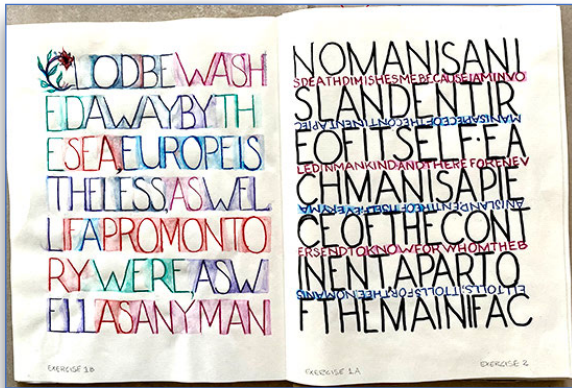 CLODBEWASH
EDAWAYBYTH
ESEA,EUROPEIS
THELESS,ASWEL
LIFAPROMONTO
RYWERE,ASW
ELLASANYMAN
EXERCISE 1B
NOMANISANI
SDEATHDIMISHESMEBECAUSEIAMINVO
SLANDENTIR
EOFITSELF·EA
LEDINMANKINDANDTHEREFORENEV
CHMANISAPIE
CEOFTHECONT
ERSENDTOKNOWFORWHOMTHEB
INENTAPARTO
FTHEMAINIFAC
EXERCISE 1A
EXERCISE 2